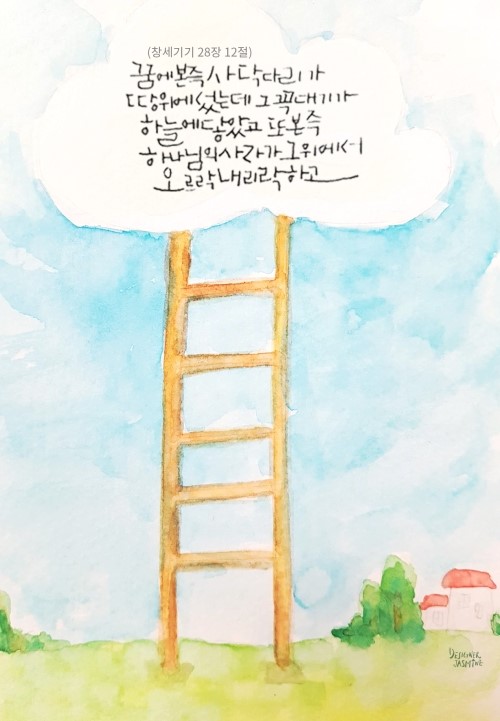 (창세기기 28장 12절)
꿈에본즉 사닥다리가
땅위에섰는데 그 꼭대기가
하늘에닿았고 또본즉
하나님의사자가 그위에서
오르락내리락하고
DESIGNER
JASMINE